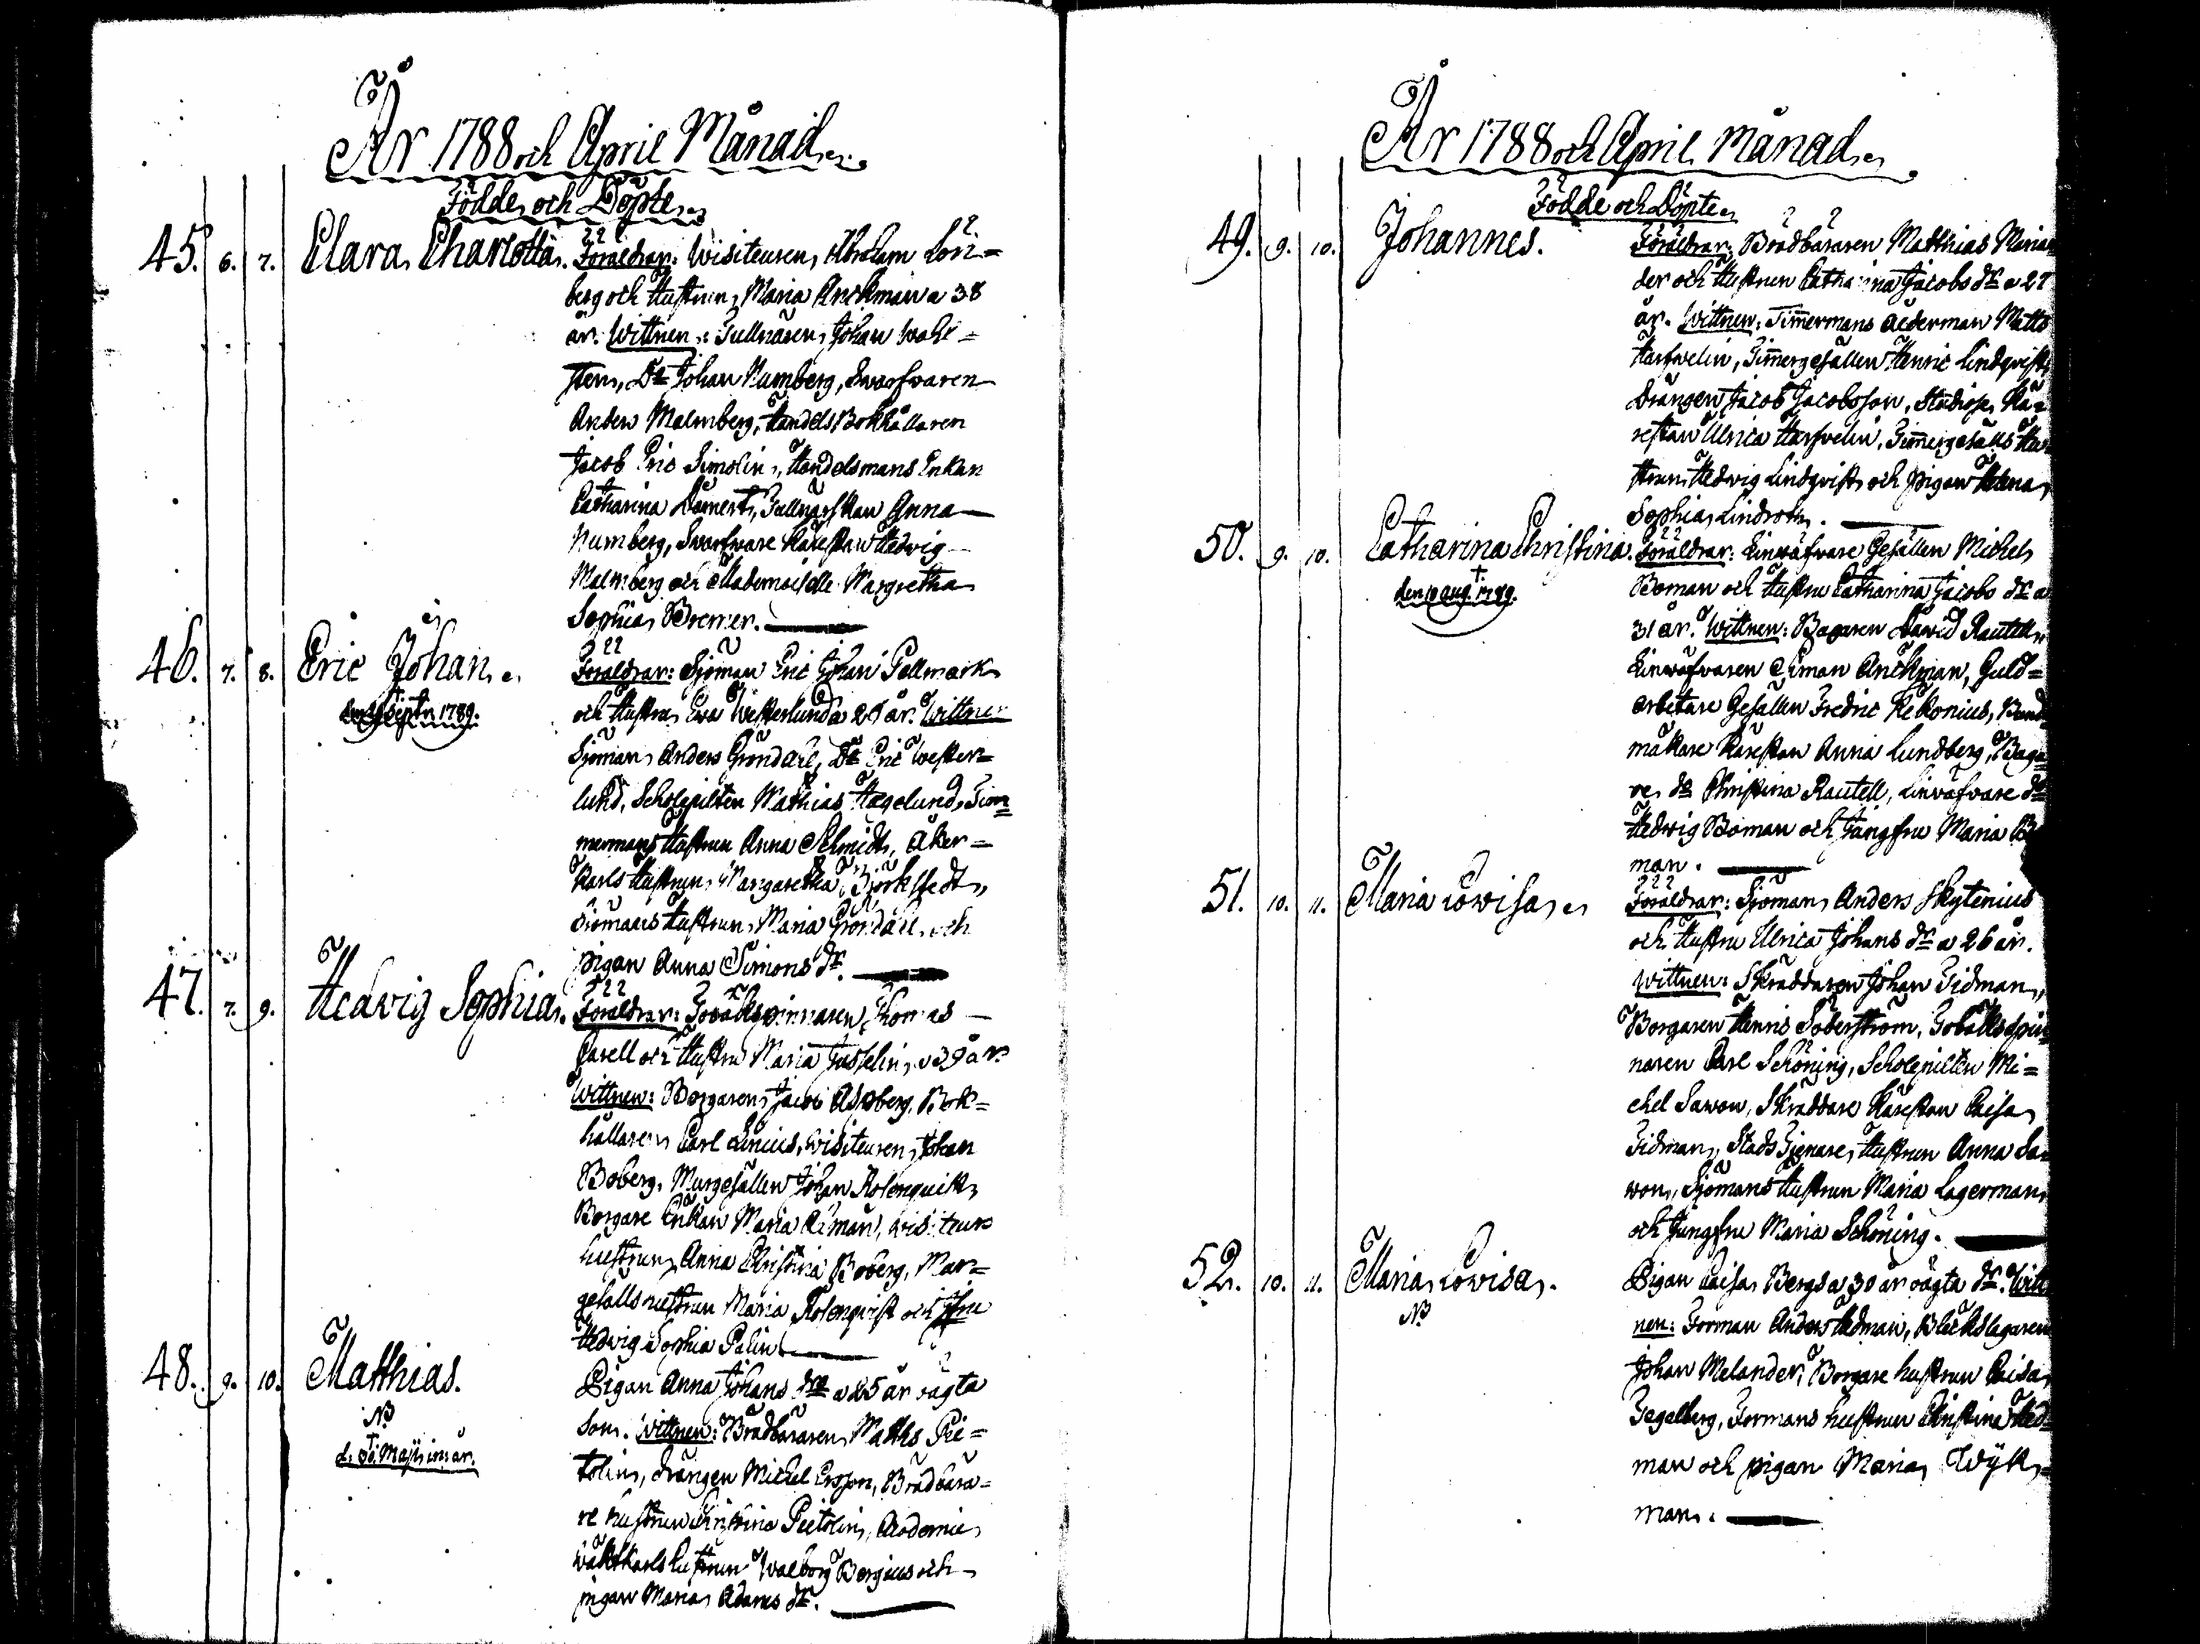 År 1788 och April Månad.
Födde och Döpte.
45. 6. 7. Clara Charlotta. Föräldrar: Wisiteuren Abraham Lön=
berg och Hustrun Maria Anckman a 38
år. Wittnen: Tullnären Johan Wahl=
sten, Do Johan Numberg, Swarfwaren
Anders Malmberg, Handels Bokhållaren
Jacob Eric Simolin, Handelsmans Enkan
Catharina Tullnärskan Anna
Numberg, Swarfware Käreskan Hedwig
Malmberg och Mademoiselle Margretha
Sophia Bremer.
46. 7. 8. Eric Johan. Föräldrar: Sjöman Eric Johan Gellmark
Septr 1789. och Hustru Ewa Westerlund a år. Wittnen
Sjöman Anders Gröndahl, Do Eric Wester=
lund, Scholepilten Mathias Hagelund, Tim=
mermans Hustrun Anna Schmidt, Åker=
karls Hustrun Margaretha Björkstedt,
Sjömans Hustrun Maria Gröndahl och
pigan Anna Simons dr.
47. 7. 9. Hedvig Sophia. Föräldrar: Thomas
Carell och Hustru Maria a 39 år.
Wittnen: Borgaren Jacob Asplberg, Bok=
hållaren Carl Linius, Wisiteuren Johan
Boberg, Murgesällen Johan Rosenquist,
Borgare Enkan Maria Wisiteurs
hustrun Anna Christina Boberg, Mur=
gesälls hustrun Maria Rosenqvist och jfru
Hedwig Sophia Palin
48. 9. 10. Matthias. Pigan Anna Johans dr a 25 år oägta
NB son. Wittnen: Brädbäraren Matths Pie=
d. Maji im: år. tolin, drängen Michel Ersson, Brädbära=
re hustrun Christina Pietolin, Academie
wacktkarls hustrun Walborg Bergius och
pigan Maria Adams dr.
År 1788 och April Månad.
Födde och Döpte.
49. 9. 10. Johannes. Föräldrar: Brädbäraren Matthias Marian
der och Hustrun Catharina Jacobs dr a 27
år. Wittnen: Timmermans Ålderman Matts
Harfwelin, Timmergesällen Henric Lindqvist,
Drängen Jacob Jacobsson, Studiosi Kä=
restan Ulrica Harfwelin, Timmergesälls Hu=
strun Hedwig Lindqvist och pigan Helena
Sophia Lindroth.
50. 9. 10. Catharina Christina. Föräldrar: Linwäfware Gesällen Michel
den 10 Aug. 1789. Boman och Hustru Catharina Jacobs dr a
31 år. Wittnen: Bagaren Dawid Rautell,
Linwäfwaren Simon Anckman, Guld=
arbetare Gesällen Fredric Kekonius, Band
makare Käreskan Anna Lundberg, Baga=
re do Christina Rautell, Linwäfware do
Hedwig Boman och Jungfru Maria Bo
man.
51. 10. 11. Maria Lowisa. Föräldrar: Sjöman Anders Skytenius
och Hustru Ulrica Johans dr a 26 år.
Wittnen: Skräddaren Johan Tidman,
Borgaren Henric Söderström, Tobakspin
naren Carl Schöning, Scholepilten Mi=
chel Sawon, Skräddare Käreskan Caisa
Tidman, Stads Tjenare Hustrun Anna Sa=
won, Sjömans Hustrun Maria Lagerman
och Jungfru Maria Schöning.
52. 10. 11. Maria Lowisa. Pigan Caisa Bergs a 30 år oägta dr. Witt
NB nen: Forman Anders Hedman, Bleckslagaren
Johan Melander, Borgare hustrun Caisa
Tegelberg, Formans hustrun Christina Hed=
man och pigan Maria Wijk=
man.